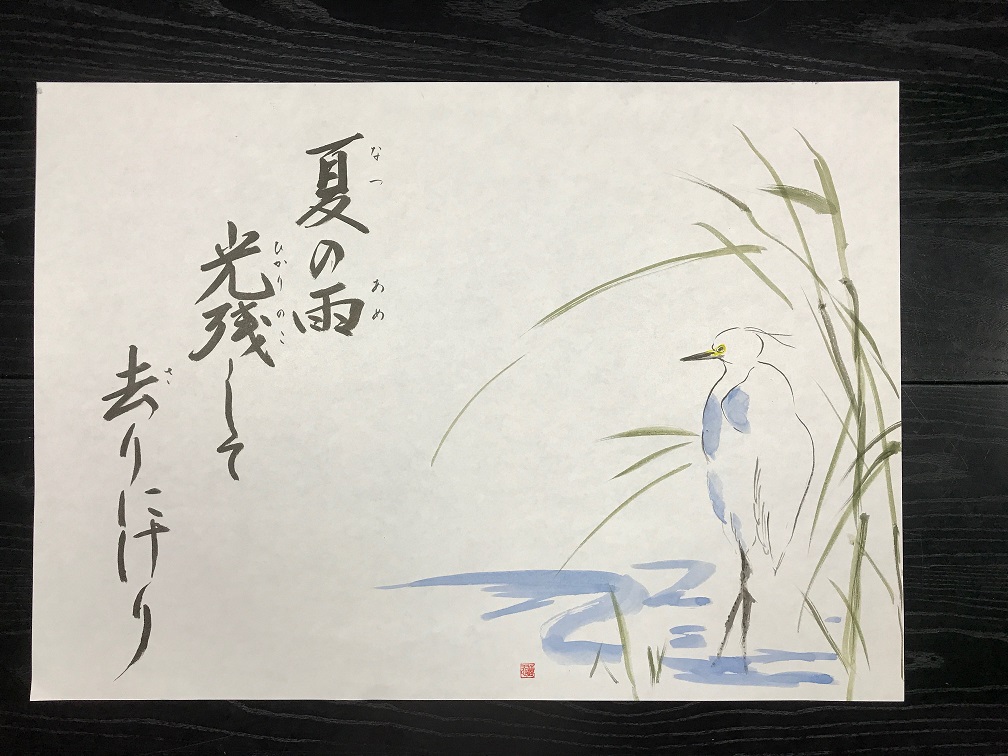 夏の雨
なつ
あめ
光残して
ひかりのこ
去りにけり
さ